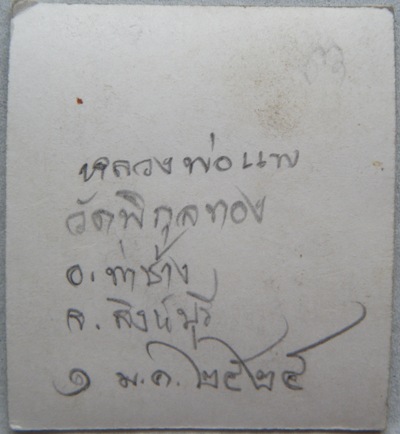 หลวงพ่อแพ
วัดพิกุลทอง
อ. ท่าช้าง
จ. สิงห์บุรี
๑ ม.ค. ๒๕๒๕